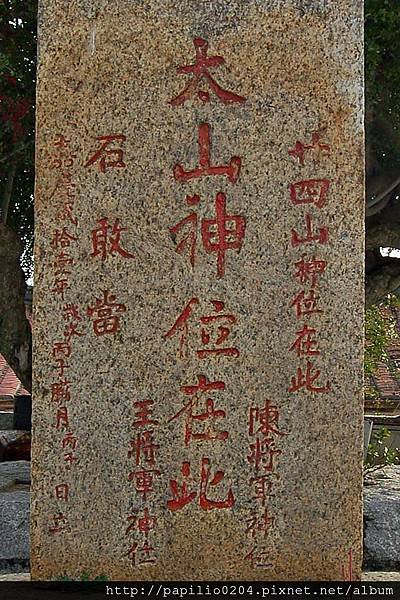 廿四山神位在此
陳將軍神位
太山神位在此
王將軍神位
石敢當
拾壹年歲次丙子臘月丙子日立
http://papilio0204.pixnet.net/album